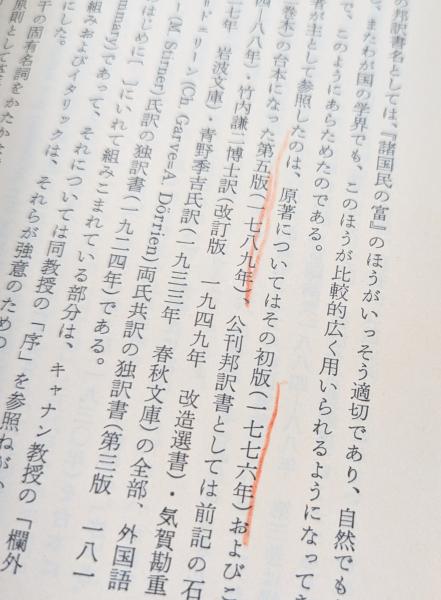 の邦訳書名としては、『諸国民の富』のほうがいっそう適切であり、自然でも
、またわが国の学界でも、このほうが比較的広く用いられるようになってき
で、このようにあらためたのである。
者が主として参照したのは、原著についてはその初版(一七七六年)およびこ
二巻本)の台本になった第五版(一七八九年)、公刊邦訳書としては前記の石
四一八八年)・竹内謙二博士訳(改訂版 一九四九年 改造選書)・気賀勘重
七年 岩波文庫)・青野季吉氏訳(一九三三年 春秋文庫)の全部、外国語
リドェリーン(Ch. Garve-A. Dörrien)両氏共訳の独訳書(第三版 一八一
ー(M. Stirner)氏訳の独訳書(一九二四年)である。
はじめに〔 〕にいれて組みこまれている部分は、キャナン教授の「欄外
mmary)であって、それについては同教授の「序」を参照ねがい
組みおよびイタリックは、それらが強意のための
にした。
干の固有名詞をかたかな
原則として